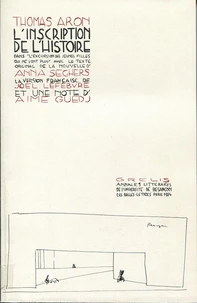 THOMAS ARON
L'INSCRIPTION
DE L'HISTOIRE
DANS "L'EXCURSION DES JEUNES FILLES
QUI NE SONT PLUS" AVEC LE TEXTE
ORIGINAL DE LA NOUVELLE D'
ANNA SEGHERS
LA VERSION FRANÇAISE DE
JOËL LEFEBVRE
ET UNE NOTE D'
AIMÉ GUEDJ
GRELIS
ANNALES LITTÉRAIRES
DE L'UNIVERSITÉ DE BESANÇON
LES BELLES LETTRES PARIS 1984